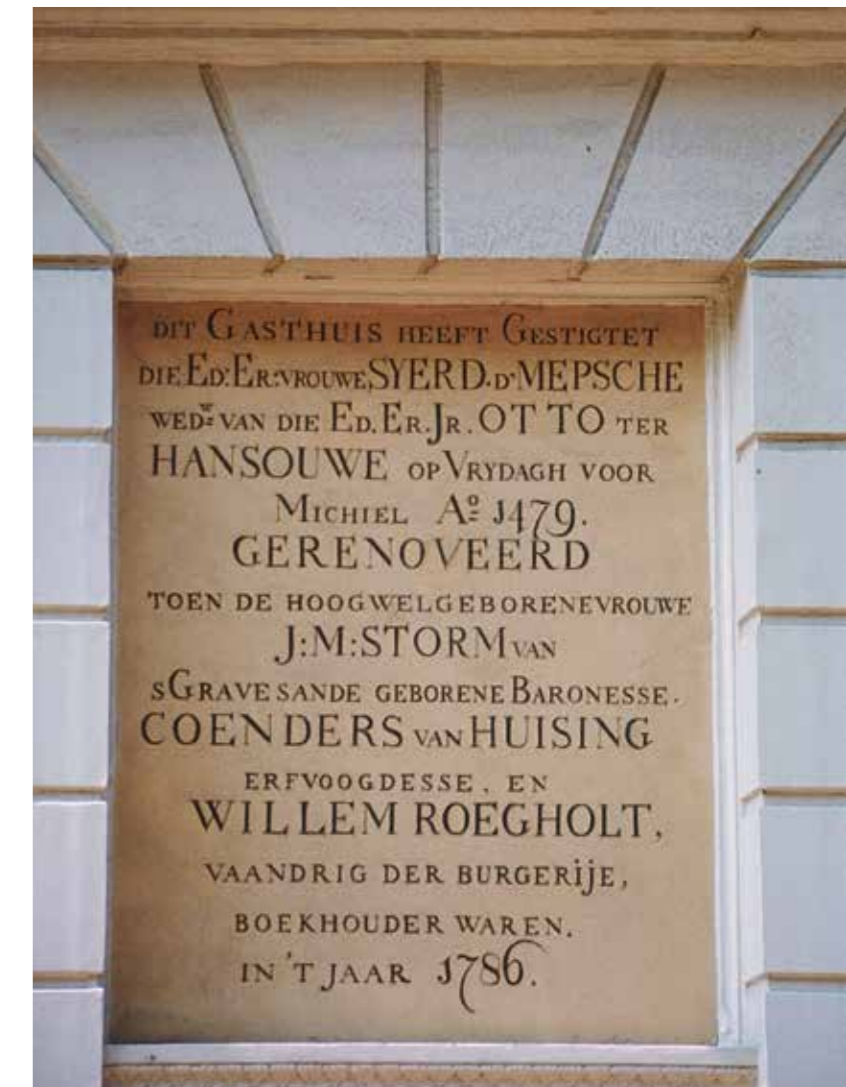 DIT GASTHUIS HEEFT GESTIGTET
DIE ED: ER: VROUWE, SYERD. D' MEPSCHE
WEDW: VAN DIE ED. ER. JR. OTTO TER
HANSOUWE OP VRYDAGH VOOR
MICHIEL Aº 1479.
GERENOVEERD
TOEN DE HOOGWELGEBORENE VROUWE
J: M: STORM VAN
SGRAVESANDE GEBORENE BARONESSE.
COENDERS VAN HUISING
ERFVOOGDESSE, EN
WILLEM ROEGHOLT,
VAANDRIG DER BURGERIJE,
BOEKHOUDER WAREN.
IN 'T JAAR 1786.